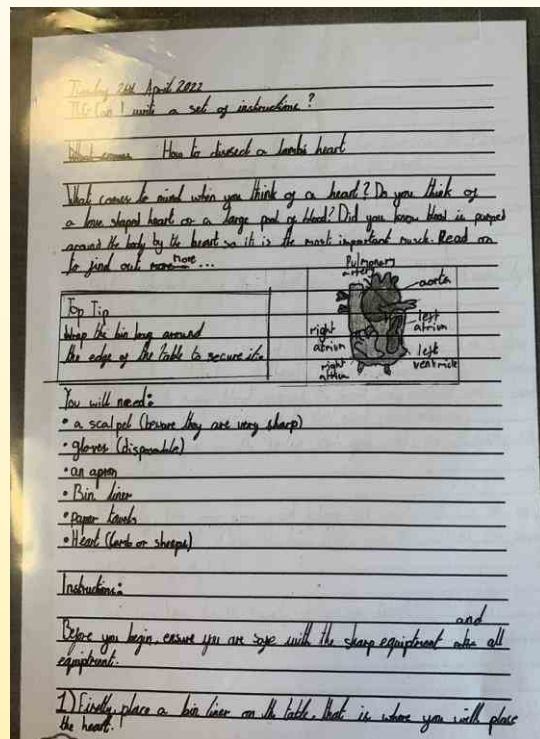 Tuesday 26th April 2022
TLQ: Can I write a set of instructions?
What comes How to dissect a lambs heart
What comes to mind when you think of a heart? Do you think of
a love shaped heart or a large pool of blood? Did you know blood is pumped
around the body by the heart so it is the most important muscle. Read on
to find out more...
Pulmonary
artery
aorta
Top Tip
Wrap the bin bag around
the edge of the table to secure it.
left
atrium
right
atrium
left
ventricle
right
atrium
You will need:
• a scalpel (beware they are very sharp)
• gloves (disposable)
• an apron
• Bin liner
• paper towels
• Heart (lamb or sheeps)
Instructions:
and
Before you begin, ensure you are safe with the sharp equiptment all
equiptment.
1) Firstly, place a bin liner on the table, that is where you will place
the heart.